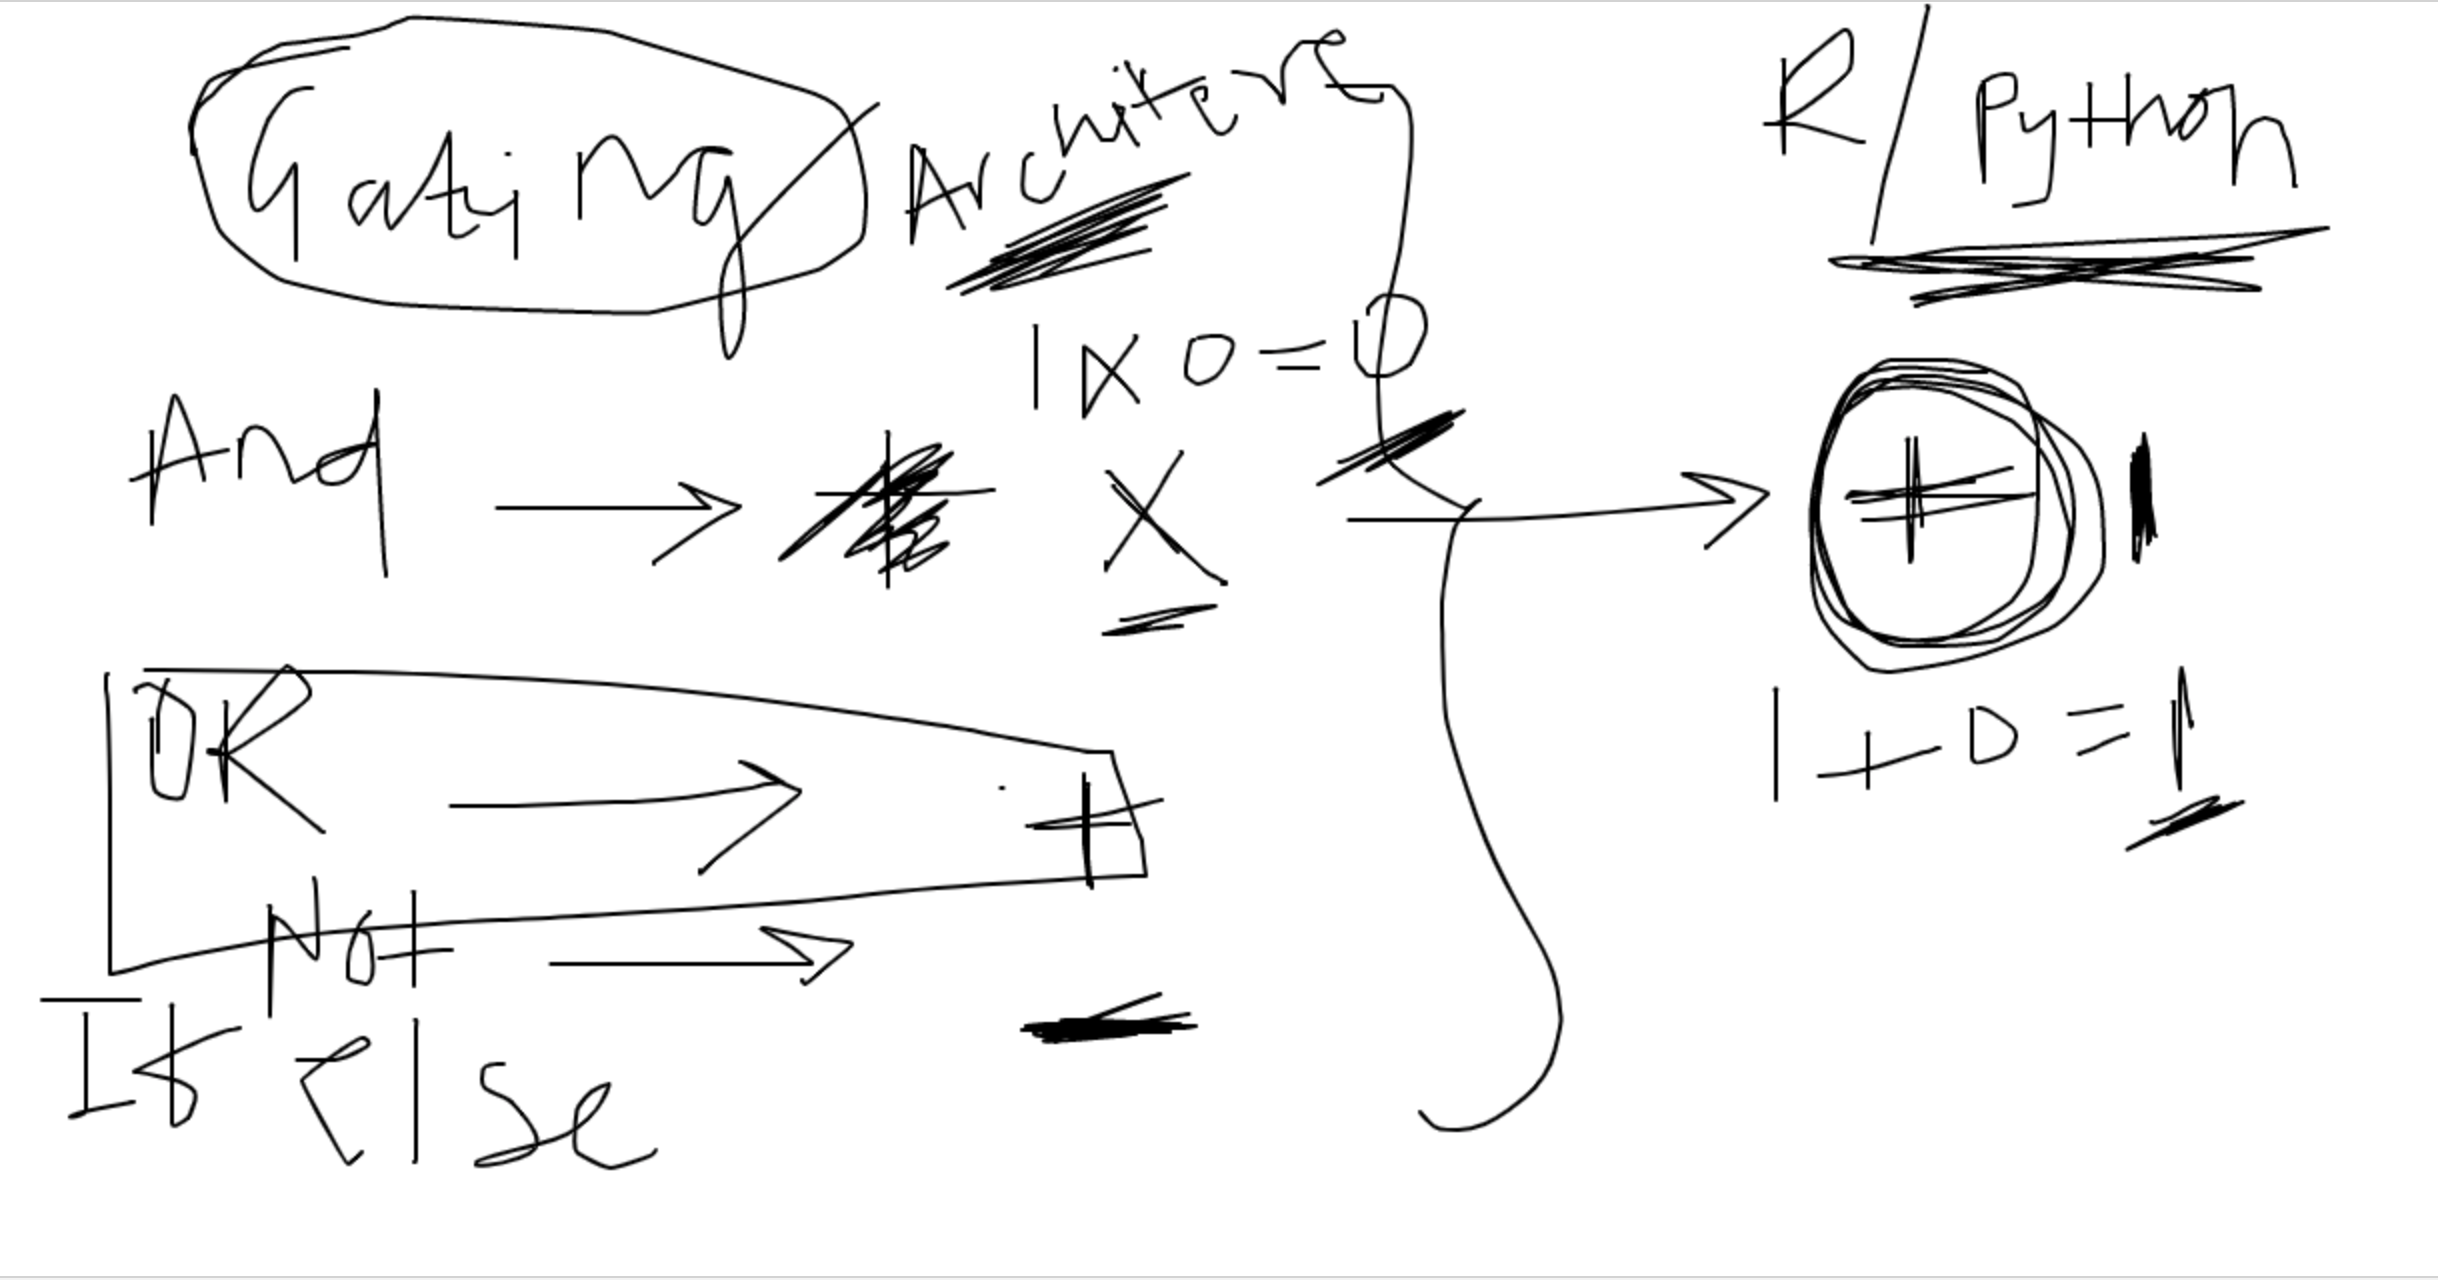 Gating Architere R/Python
1 x 0 = 0
And → x → +
1 + 0 = 1
OR → +
Not → -
If else